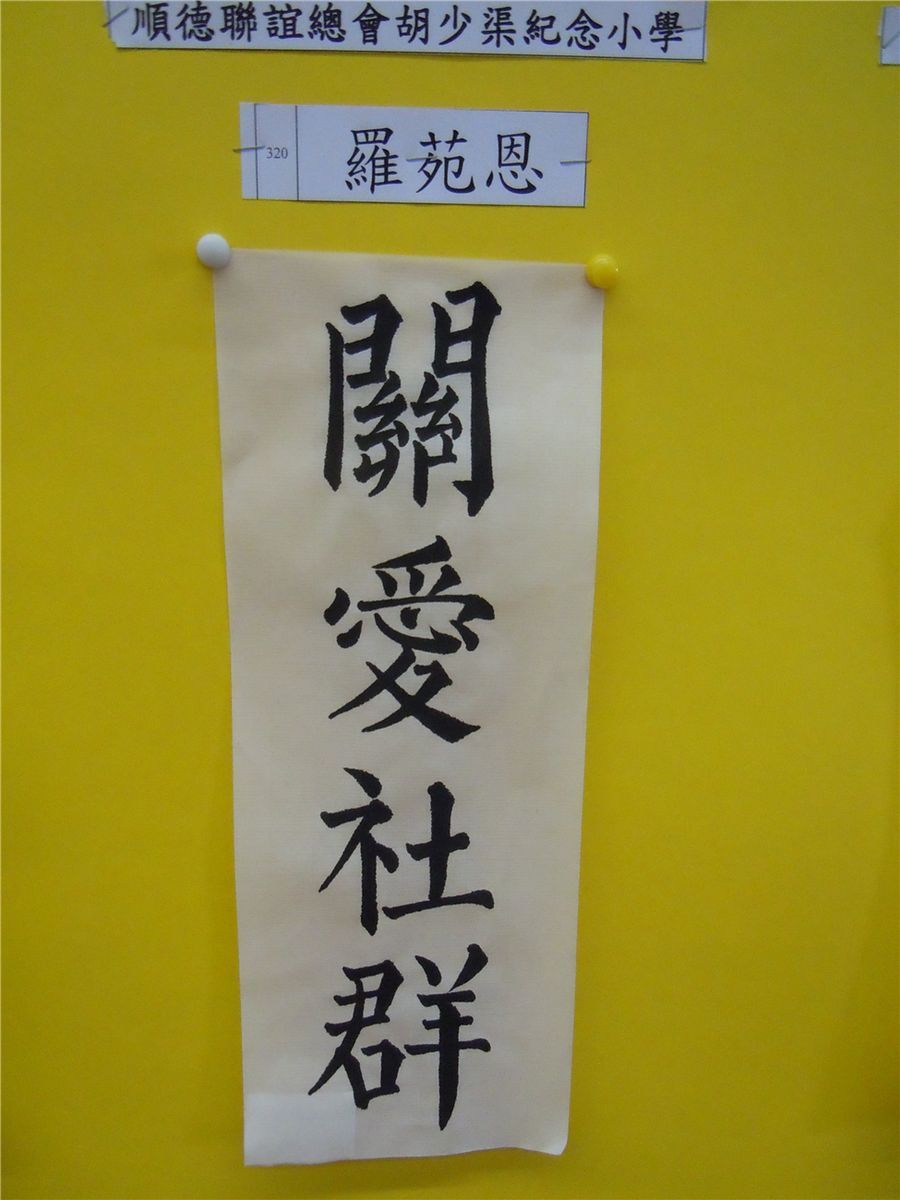 順德聯誼總會胡少渠紀念小學
320 羅苑恩
關愛社群